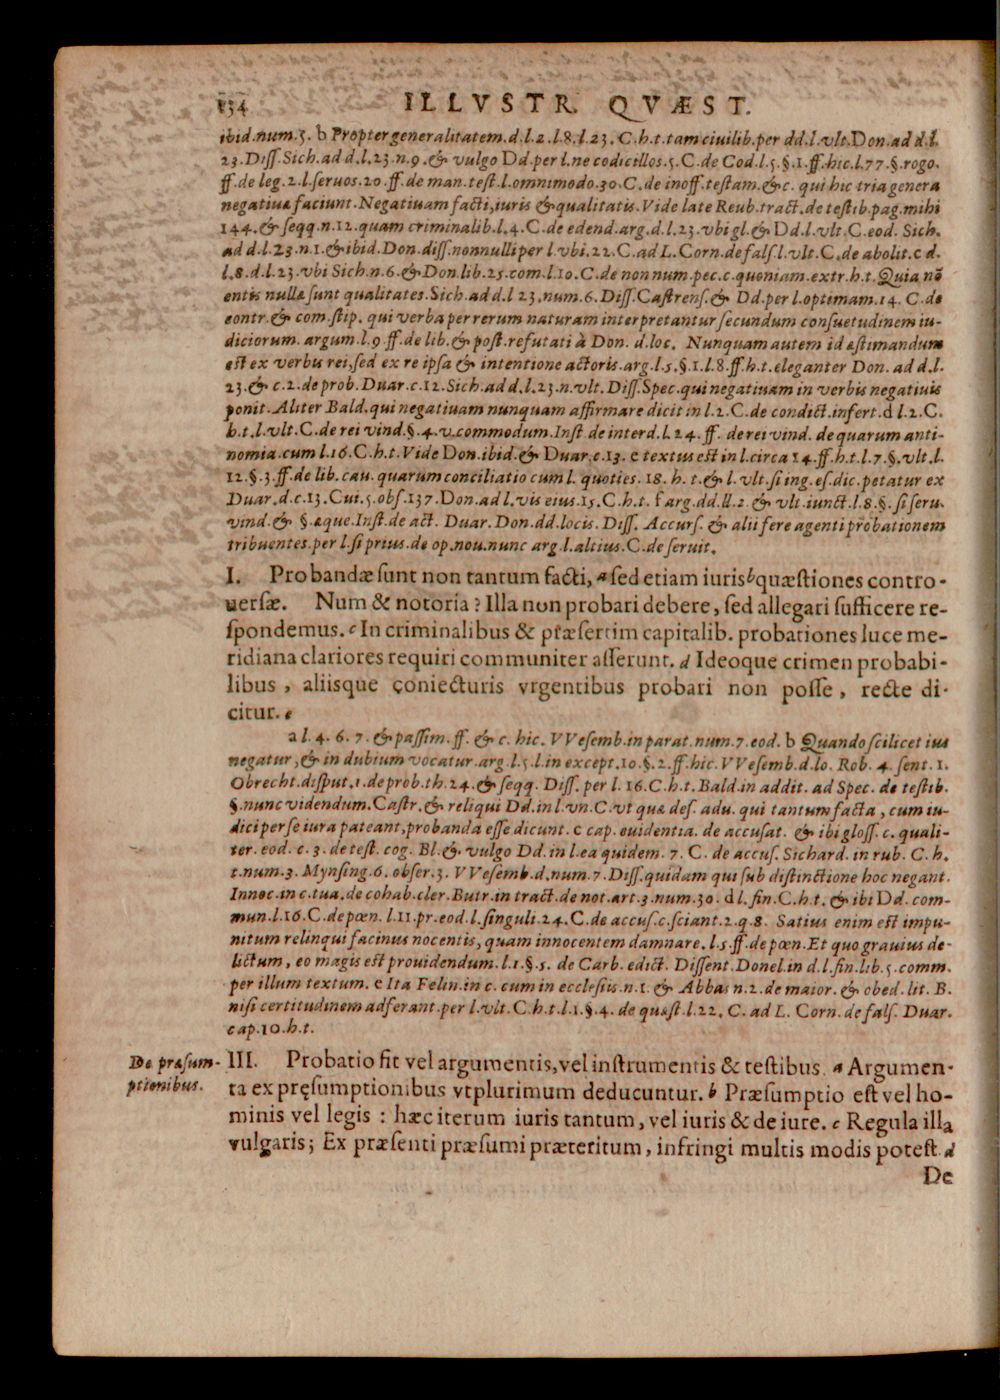 134 ILLVSTR. QVÆST.
ibid.num.5. b Propter generalitatem.d.l.2.l.8.l.23. C.h.t.tam ciuilib.per dd.l.vlt.Don.ad d.l.
23.Diſſ.Sich.ad d.l.23.n.9.& vulgo Dd.per l.ne codicillos.5.C.de Cod.l.5.§.1.ff.hic.l.77.§.rogo.
ff.de leg.2.l.ſeruos.20.ff.de man.teſt.l.omnimodo.30.C.de inoff.teſtam.&c. qui hic tria genera
negatiuæ faciunt.Negatiuam facti,iuris & qualitatis.Vide late Reub.tract.de teſtib.pag.mihi
144.& ſeqq.n.12.quam criminalib.l.4.C.de edend.arg.d.l.23.vbi gl.& Dd.l.vlt.C.eod. Sich.
ad d.l.23.n.1.& ibid.Don.diſſ.nonnulli per l vbi.22.C.ad L.Corn.de falſ.l.vlt.C.de abolit.c d.
l.8.d.l.23.vbi Sich.n.6.& Don.lib.25.com.l.10.C.de non num.pec.c.quoniam.extr.h.t.Quia nō
entis nullæ ſunt qualitates.Sich.ad d.l 23.num.6.Diſſ.Caſtrenſ.& Dd.per l.optimam.14. C.de
contr.& com.ſtip. qui verba per rerum naturam interpretantur ſecundum conſuetudinem iu-
diciorum. argum.l.9.ff.de lib.& poſt.refutati à Don. d.loc. Nunquam autem id æſtimandum
eſt ex verbis rei,ſed ex re ipſa & intentione actoris.arg.l.5.§.1.l.8.ff.h.t.eleganter Don. ad d.l.
23.& c.2.de prob.Duar.c.12.Sich.ad d.l.23.n.vlt. Diſſ.Spec.qui negatiuam in verbis negatiuis
ponit. Aliter Bald.qui negatiuam nunquam affirmare dicit in l.2.C.de condict.infert.d l.2.C.
h.t.l.vlt.C.de rei vind.§.4.v.commodum.Inſt de interd.l.24.ff. de rei vind. de quarum anti-
nomia cum l.16.C.h.t.Vide Don.ibid.& Duar.c.13. e textus eſt in l.circa 14.ff.h.t.l.7.§.vlt.l.
12.§.3.ff.de lib.cau.quarum conciliatio cum l. quoties.18. h. t.& l.vlt.ſi ing.eſ.dic.petatur ex
Duar.d.c.13.Cui.5.obſ.137.Don.ad l.vis eius.15.C.h.t. f arg.dd.ll.2.& vlt iunct.l.8.§.ſi ſeru.
vind.& §.æque.Inſt.de act. Duar.Don.dd.locis. Diſſ. Accurſ.& alii fere agenti probationem
tribuentes.per l.ſi prius.de op.nou.nunc arg.l.altius.C.de ſeruit.
I. Probandæ ſunt non tantum facti, a ſed etiam iuris b quæſtiones contro-
uerſæ. Num & notoria? Illa non probari debere, ſed allegari ſufficere re-
ſpondemus. c In criminalibus & præſertim capitalib. probationes luce me-
ridiana clariores requiri communiter aſſerunt. d Ideoque crimen probabi-
libus, aliisque coniecturis vrgentibus probari non poſſe, recte di-
citur. e
a l. 4. 6. 7. & paſſim. ff. & c. hic. VVeſemb.in parat.num.7.eod. b Quando ſcilicet ius
negatur,& in dubium vocatur.arg.l.5.l.in except.10.§.2.ff.hic.VVeſemb.d.lo. Rob. 4. ſent.1.
Obrecht.diſput.1.de prob.th.24.& ſeqq. Diſſ. per l. 16.C.h.t.Bald.in addit. ad Spec. de teſtib.
§.nunc videndum.Caſtr.& reliqui Dd.in l.vn.C.vt quæ deſ. adu. qui tantum facta, cum iu-
dici per ſe iura pateant,probanda eſſe dicunt. c cap. euidentia. de accuſat. & ibi gloſſ. c. quali-
ter. eod. c. 3. de teſt. cog. Bl.& vulgo Dd. in l.ea quidem. 7. C. de accuſ. Sichard. in rub. C. h.
t.num.3. Mynſing.6. obſer.3. VVeſemb.d.num.7.Diſſ.quidam qui ſub diſtinctione hoc negant.
Innoc.in c.tua.de cohab.cler.Butr.in tract.de not.art.3.num.30. d l.fin.C.h.t.& ibi Dd. com-
mun.l.16.C.de pœn. l.11.pr.eod.l.ſinguli.24.C.de accuſ.c.ſciant.2.q.8. Satius enim eſt impu-
nitum relinqui facinus nocentis, quam innocentem damnare.l.5.ff.de pœn.Et quo grauius de-
lictum, eo magis eſt prouidendum.l.1.§.5. de Carb. edict. Diſſent.Donel.in d.l.fin.lib.5.comm.
per illum textum. e Ita Felin.in c. cum in eccleſiis.n.1.& Abbas n.2.de maior.& obed.lit. B.
niſi certitudinem adferant.per l.vlt.C.h.t.l.1.§.4. de quæſt.l.22. C. ad L. Corn.de falſ. Duar.
cap.10.h.t.
De præſum-
ptionibus.
III. Probatio fit vel argumentis,vel inſtrumentis & teſtibus. a Argumen-
ta ex pręſumptionibus vtplurimum deducuntur. b Præſumptio eſt vel ho-
minis vel legis : hæc iterum iuris tantum, vel iuris & de iure. c Regula illa
vulgaris; Ex præſenti præſumi præteritum, infringi multis modis poteſt. d
De